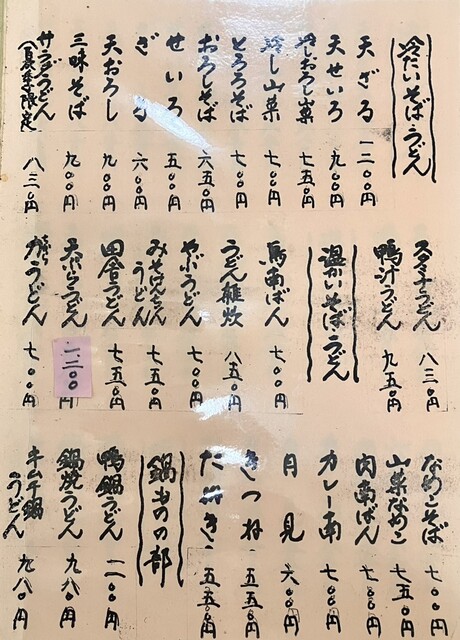 冷たいそばうどん
天ざる 一二〇〇円
天せいろ 九〇〇円
やおろし山菜 七五〇円
冷し山菜 七〇〇円
とろろそば 七〇〇円
おろしそば 六五〇円
せいろ 五〇〇円
ざる 六〇〇円
天おろし 九〇〇円
三味そば 九〇〇円
サラダうどん(夏季限定) 八三〇円
スタミナうどん 八三〇円
鴨汁うどん 九五〇円
温かいそばうどん
鳥南ばん 七〇〇円
うどん雑炊 八五〇円
やぶうどん 七〇〇円
みそにこみうどん 七五〇円
田舎うどん 七五〇円
天ぷらうどん 一二〇〇円
力うどん 七〇〇円
なめこそば 七〇〇円
山菜なめこ 七五〇円
肉南ばん 七〇〇円
カレー南 七〇〇円
月見 六〇〇円
きつね 五五〇円
たぬき 五五〇円
鍋ものの部
鴨鍋うどん 一一〇〇円
鍋焼うどん 九八〇円
牛辛鍋うどん 九八〇円